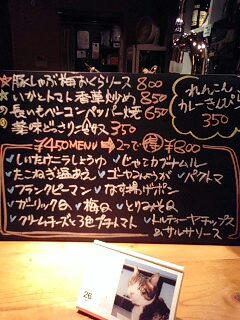 ★豚しゃぶ梅おくらソース 800
いかとトマト香草炒め 850
長いもベーコンペッパー焼 650
薬味どっさり奴 350
れんこん
カレーきんぴら
350
¥450MENU ➡ 2つで得¥800
✓しいたけウニしょうゆ ✓じゃこカブナムル
✓たこねぎ塩あえ ✓ゴーヤみょうが ✓パクトマ
✓フランクピーマン ✓なす揚げポン
✓ガーリック ✓梅Q ✓とりみそQ
✓クリームチーズと3色プチトマト ✓トルティーヤチップス
&サルサソース
26